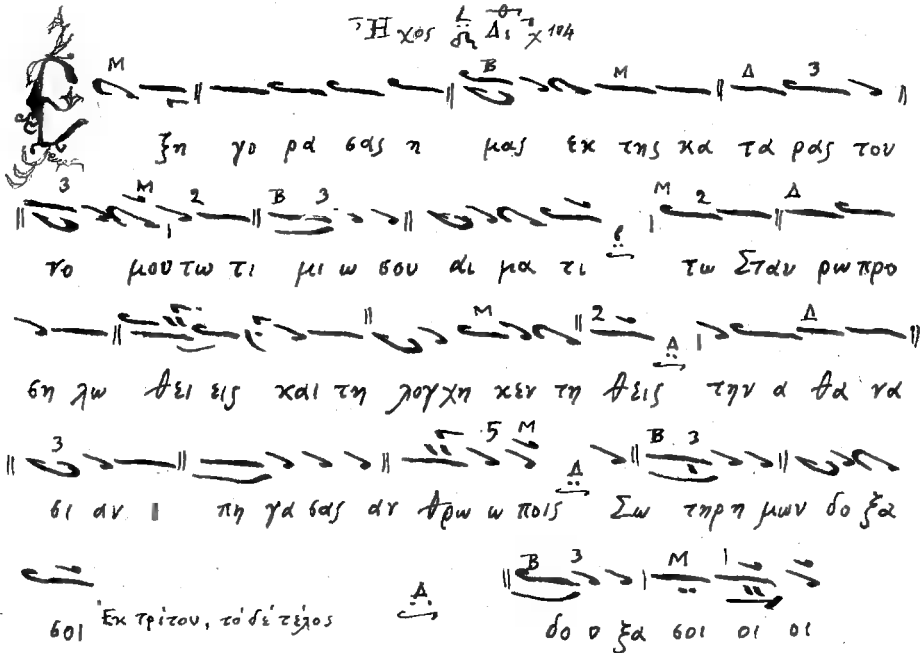 Ἦχος Δι χ 104
Ε ξη γο ρα σας η μας εκ της κα τα ρας του
νο μου τω τι μι ω σου αι μα τι τω Σταυ ρω προ
ση λω θει εις και τη λογχη κεν τη θεις την α θα να
σι αν ι πη γα σας αν θρω ω ποις Σω τηρ η μων δο ξα
σοι Ἐκ τρίτου, τὸ δὲ τέλος δο ο ξα σοι οι οι